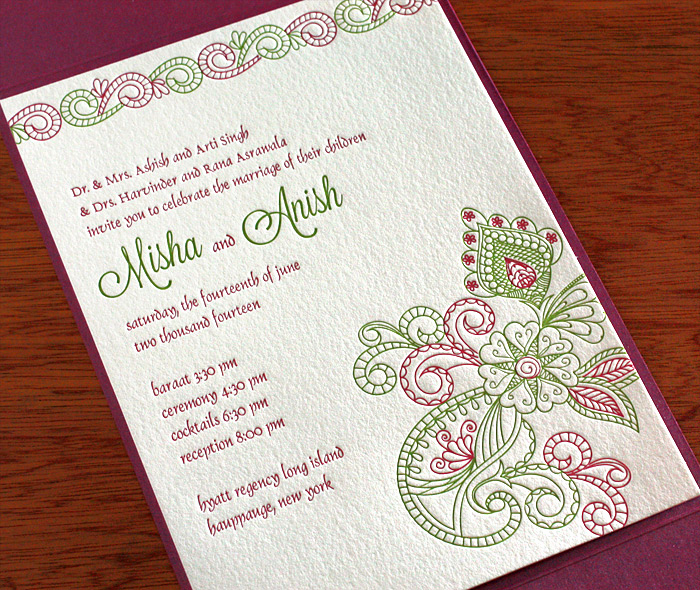 Dr. & Mrs. Ashish and Arti Singh
& Drs. Harvinder and Rana Asrawala
invite you to celebrate the marriage of their children
Misha and Anish
saturday, the fourteenth of june
two thousand fourteen
baraat 3:30 pm
ceremony 4:30 pm
cocktails 6:30 pm
reception 8:00 pm
hyatt regency long island
hauppauge, new york